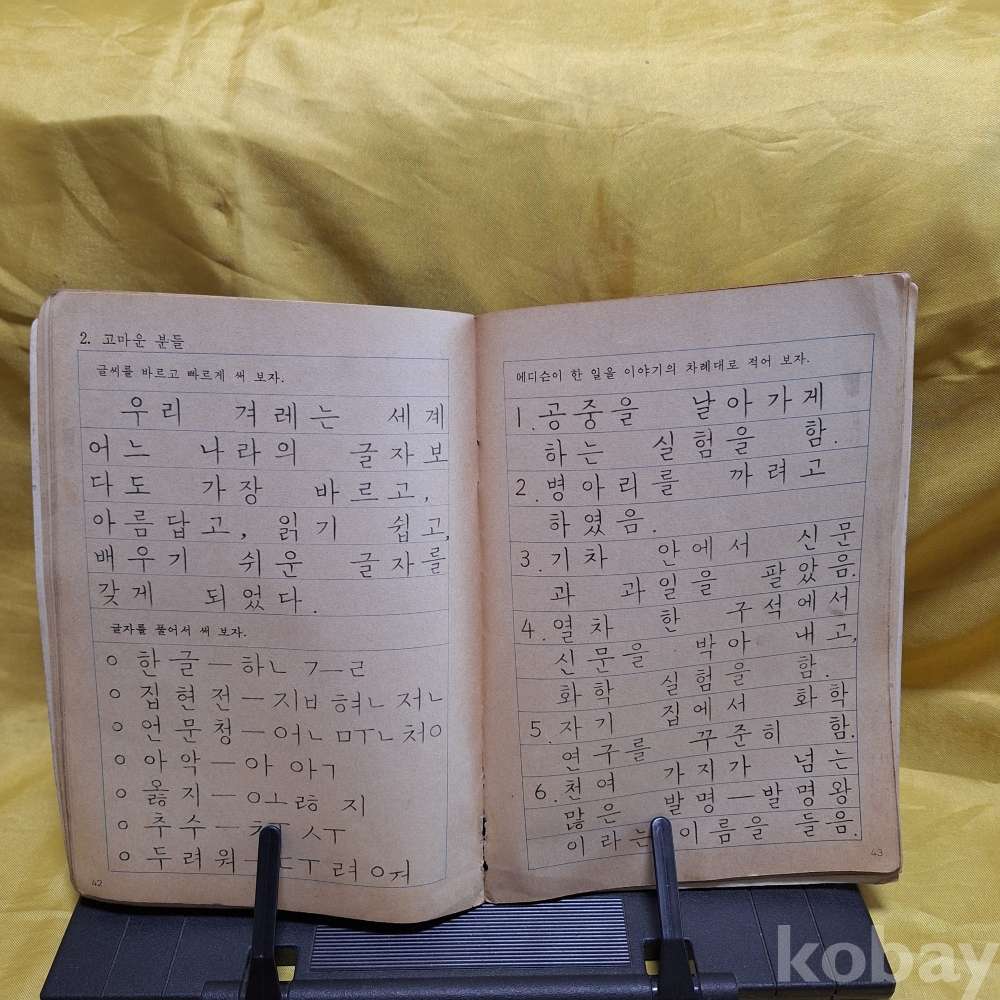 2. 고마운 분들
글씨를 바르고 빠르게 써 보자.
우리 겨레는 세계
어느 나라의 글자보
다도 가장 바르고,
아름답고, 읽기 쉽고,
배우기 쉬운 글자를
갖게 되었다.
글자를 풀어서 써 보자.
○ 한글—하ㄴ ㄱㅡㄹ
○ 집현전—지ㅂ혀ㄴ저ㄴ
○ 언문청—어ㄴㅁㅜㄴ처ㅇ
○ 아악—아 아ㄱ
○ 옳지—ㅇㅗㄹㅎ 지
○ 추수—ㅊㅜ ㅅㅜ
○ 두려워—ㄷㅜ려ㅇㅝ
42
에디슨이 한 일을 이야기의 차례대로 적어 보자.
1. 공중을 날아가게
하는 실험을 함.
2. 병아리를 까려고
하였음.
3. 기차 안에서 신문
과 과일을 팔았음.
4. 열차 한 구석에서
신문을 박아 내고,
화학 실험을 함.
5. 자기 집에서 화학
연구를 꾸준히 함.
6. 천여 가지가 넘는
많은 발명—발명왕
이라는 이름을 들음.
43
kobay